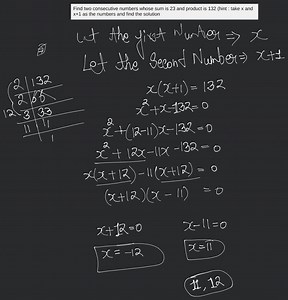 Find two consecutive numbers whose sum is 23 and product is 132 (hint : take x and
x+1 as the numbers and find the solution
Let the first Number ⇒ x
Let the Second Number ⇒ x+1
x(x+1) = 132
x²+x-132=0
x²+(12-11)x-132=0
x²+12x-11x-132=0
x(x+12)-11(x+12)=0
(x+12)(x-11) =0
x+12=0
x=-12
x-11=0
x=11
11, 12
2 132
2 66
12 3 33
11 11
1